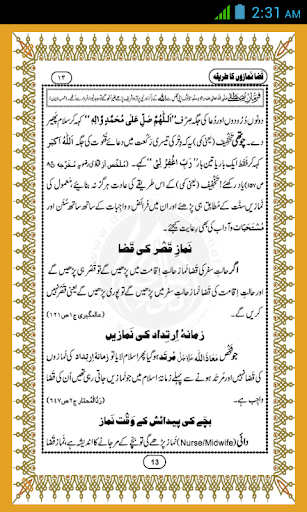 2:31 AM
قضا نمازوں کا طریقہ ۱۳
دونوں دُرُودوں اور دُعا کی جگہ صرف ”اَللّٰھُمَّ صَلِّ عَلٰی مُحَمَّدٍ وَّاٰلِہٖ“ کہہ کر سلام پھیر
دے۔ چوتھی تخفیف (یعنی کمی) یہ کہ وِتْر کی تیسری رَکْعت میں دعائے قُنُوت کی جگہ اَللہُ اَکْبَر
کہہ کر فقط ایک بار یا تین بار ”رَبِّ اغْفِرْ لِیْ“ کہے۔ (مُلَخَّص اَز فتاوٰی رضویہ مُخَرَّجہ ج۸
ص۱۵۷) یاد رکھئے! تخفیف (یعنی کمی) کے اس طریقے کی عادت ہرگز نہ بنائیے، معمول کی
نمازیں سنّت کے مطابق ہی پڑھئے اور ان میں فرائض و واجبات کے ساتھ ساتھ سُنَن اور
مُسْتَحَبّات و آداب کی بھی رعایت کیجئے۔
نمازِ قَصْر کی قضا
اگر حالتِ سفر کی قضا نماز حالتِ اِقامت میں پڑھیں گے تو قَصْر ہی پڑھیں گے
اور حالتِ اِقامت کی قضا نماز حالتِ سفر میں پڑھیں گے تو پوری پڑھیں گے یعنی قَصْر نہیں
کریں گے۔ (عالمگیری ج۱ص۱۲۱)
زمانۂ اِرتِداد کی نمازیں
جو شخص مَعاذَ اللہ عزوجل مُرتَد ہو گیا پھر اسلام لایا تو زمانۂ اِرتِداد کی نمازوں
کی قضا نہیں اور مُرتَد ہونے سے پہلے زمانۂ اسلام میں جو نمازیں جاتی رہی تھیں اُن کی قضا
واجب ہے۔ (رَدُّالْمُحتار ج۲ص۶۴۷)
بچّے کی پیدائش کے وَقْت نماز
دائی (Nurse/Midwife) نماز پڑھے گی تو بچّے کے مر جانے کا اندیشہ ہے، نماز قضا
13